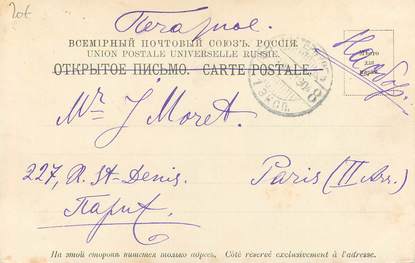 Печатное.
ВСЕМІРНЫЙ ПОЧТОВЫЙ СОЮЗЪ. РОССІЯ
UNION POSTALE UNIVERSELLE RUSSIE.
ОТКРЫТОЕ ПИСЬМО. CARTE POSTALE.
Мѣсто
для
марки.
Mr J Moret.
227, R. St-Denis.
Paris (II Arr.)
Париж.
На этой сторонѣ пишется только адресъ. Côté réservé exclusivement à l'adresse.